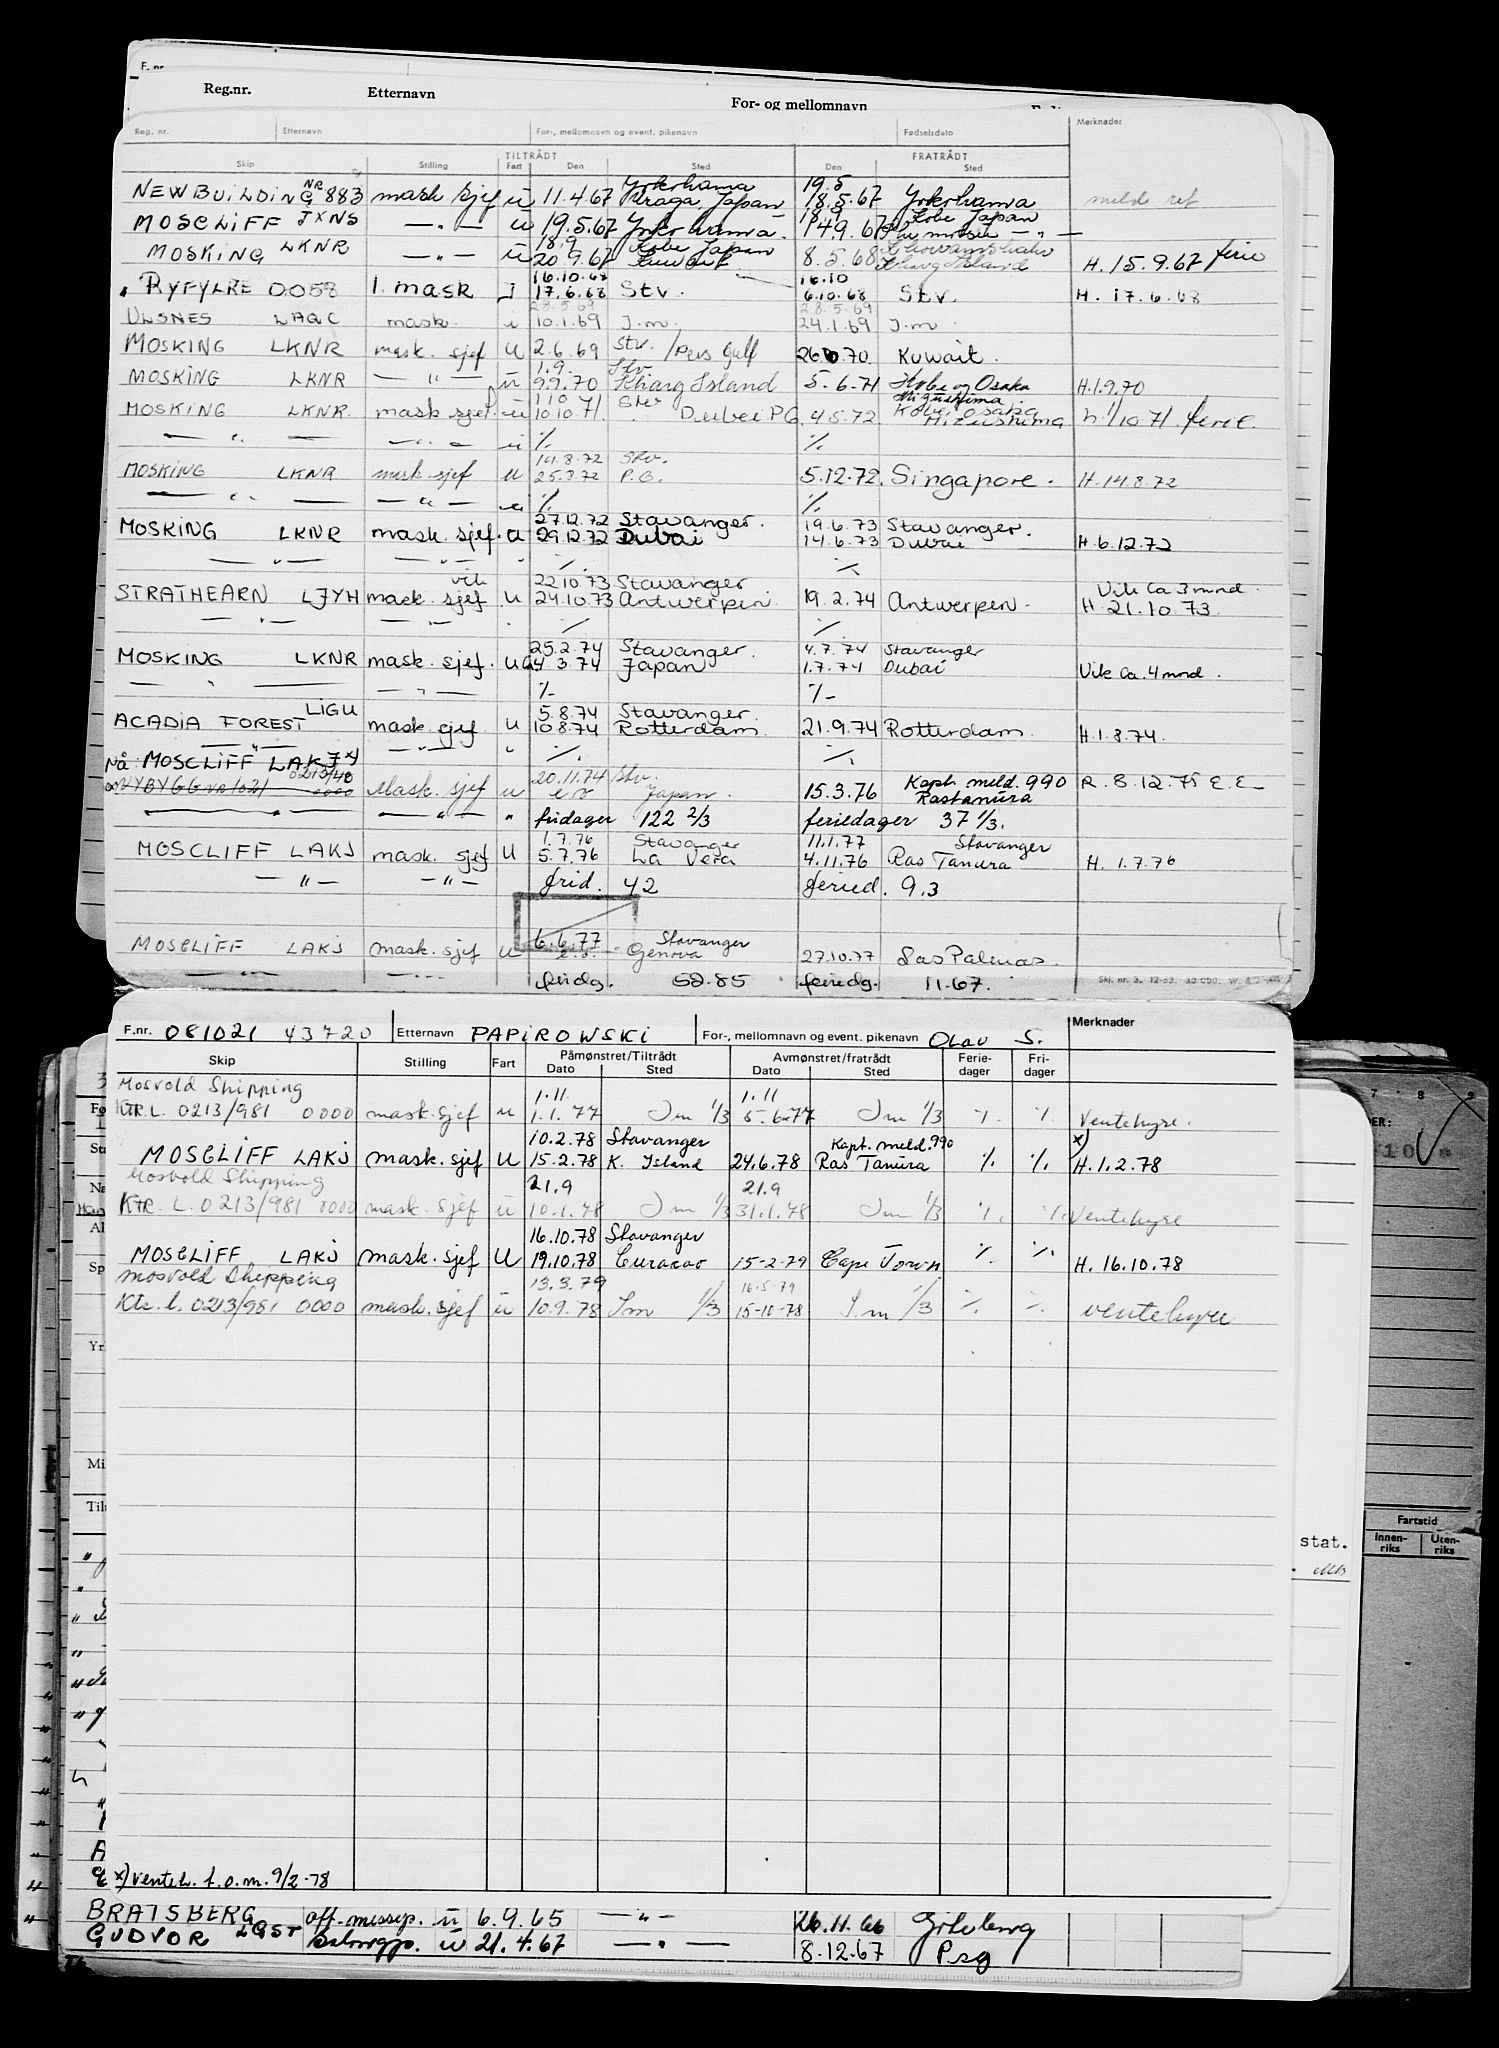 F. nr.
Reg.nr. Etternavn For- og mellomnavn
Reg. nr. Etternavn For-, mellomnavn og event. pikenavn Fødselsdato Merknader
TILTRÅDT FRATRÅDT
Skip Stilling Fart Den Sted Den Sted
NR Yokohama 19.5
NEWBUILDING 883 mask sjef ü 11.4.67 Uraga, Japan 18.5.67 Yokohama meld ret
18.9 Kobe Japan
MOSCLIFF JXNS —"— ü 19.5.67 Yokohama 14.9.67 —"—
18.9 Kobe Japan
MOSKING LKNR —"— ü 20.9.67 Kuwait 8.5.68 Kharg Island H. 15.9.67 ferie
16.10.68 16.10
RYFYLKE 0058 1. mask J 17.6.68 Stv. 6.10.68 Stv. H. 17.6.68
28.5.69 28.5.69
ULSNES LAQC mask. i 10.1.69 J.m. 24.1.69 J.m.
MOSKING LKNR mask. sjef u 2.6.69 Stv. /Pers Gulf 26.6.70 Kuwait.
1.9. Stv
MOSKING LKNR —"— ü 9.9.70 Kharg Island 5.6.71 Kobe og Osaka H.1.9.70
1.10 Stv Mizushima
MOSKING LKNR mask sjef ü 10.10.71. Dubai P.G. 4.5.72. Kobe, Osaka Mizushima h 1/10 71. ferie.
—"— —"— ü % %
14.8.72 Stv.
MOSKING LKNR mask sjef u 25.8.72 P.G. 5.12.72. Singapore. H.14.8.72
—"— —"— u % %
27.12.72 Stavanger. 19.6.73 Stavanger.
MOSKING LKNR mask. sjef. u 29.12.72 Dubai 14.6.73 Dubai H.6.12.72
—"— —"— % %
vik 22.10.73 Stavanger Vik Ca 3 mnd.
STRATHEARN LJYH mask. sjef u 24.10.73 Antwerpen. 19.2.74 Antwerpen. H. 21.10.73.
—"— —"— % %
25.2.74 Stavanger. 4.7.74 Stavanger
MOSKING LKNR mask. sjef. u 04.3.74 Japan 1.7.74 Dubai Vik Ca. 4 mnd.
—"— —"— % %
LIGU 5.8.74 Stavanger.
ACADIA FOREST mask. sjef u 10.8.74 Rotterdam. 21.9.74 Rotterdam. H.1.8.74.
—"— —"— " % %
Nå: MOSCLIFF LAKJ x)
0213/48 20.11.74 Stv. Kapt. meld. 990
NYBYGG NR 1021 0000 Mask. sjef u e.o Japan. 15.3.76 Rastanura R. 8.12.75 E.E.
—"— —"— " fridager 122 2/3 feriedager 37 1/3.
1.7.76 Stavanger 11.1.77 Stavanger
MOSCLIFF LAKJ mask. sjef u 5.7.76 La Vera 4.11.76 Ras Tanura H. 1.7.76
—"— —"— frid. 42 feried. 9.3
6.6.77 Stavanger
MOSCLIFF LAKJ mask. sjef u e.o. Genova 27.10.77 Las Palmas.
—"— —"— fridg. 52.85 feriedg. 11.67.
Skj. nr. 3. 12-63. 30 000. W.
F.nr. 081021 43720 Etternavn PAPIROWSKI For-, mellomnavn og event. pikenavn Olav S. Merknader
Skip Stilling Fart Påmønstret/Tiltrådt Avmønstret/fratrådt Ferie- Fri-
Dato Sted Dato Sted dager dager
Mosvold Shipping 1.11. 1.11
Ktr. L. 0213/981 0000 mask. sjef u 1.1.77 Jm 1/3 5.6.77 Jm 1/3 % % Ventehyre.
10.2.78 Stavanger Kapt. meld. 990 x)
MOSCLIFF LAKJ mask. sjef u 15.2.78 K. Island 24.6.78 Ras Tanura % % H.1.2.78
Mosvold Shipping 21.9 21.9
Ktr. L. 0213/981 0000 mask. sjef ü 10.1.78 Jm 1/3 31.1.78 Jm 1/3 % % Ventehyre
16.10.78 Stavanger
MOSCLIFF LAKJ mask. sjef u 19.10.78 Curacao 15-2-79 Cape Town % % H. 16.10.78
Mosvold Shipping 13.3.79 16.5.79
Ktr. l. 0213/981 0000 mask. sjef ü 10.9.78 Jm 1/3 15-10-78 J.m 1/3 % % Ventehyre
x) Venteh. f.o.m. 9/2-78
BRATSBERG off. messep. ü 6.9.65 —"— 26.11.66 Göteborg
GUDVOR LGST Salongp. ü 21.4.67 —"— 8.12.67 Psg
7 - 8 9
ER:
Yr
Mi
Til
stat.
Fartstid
Innen- riks Uten- riks